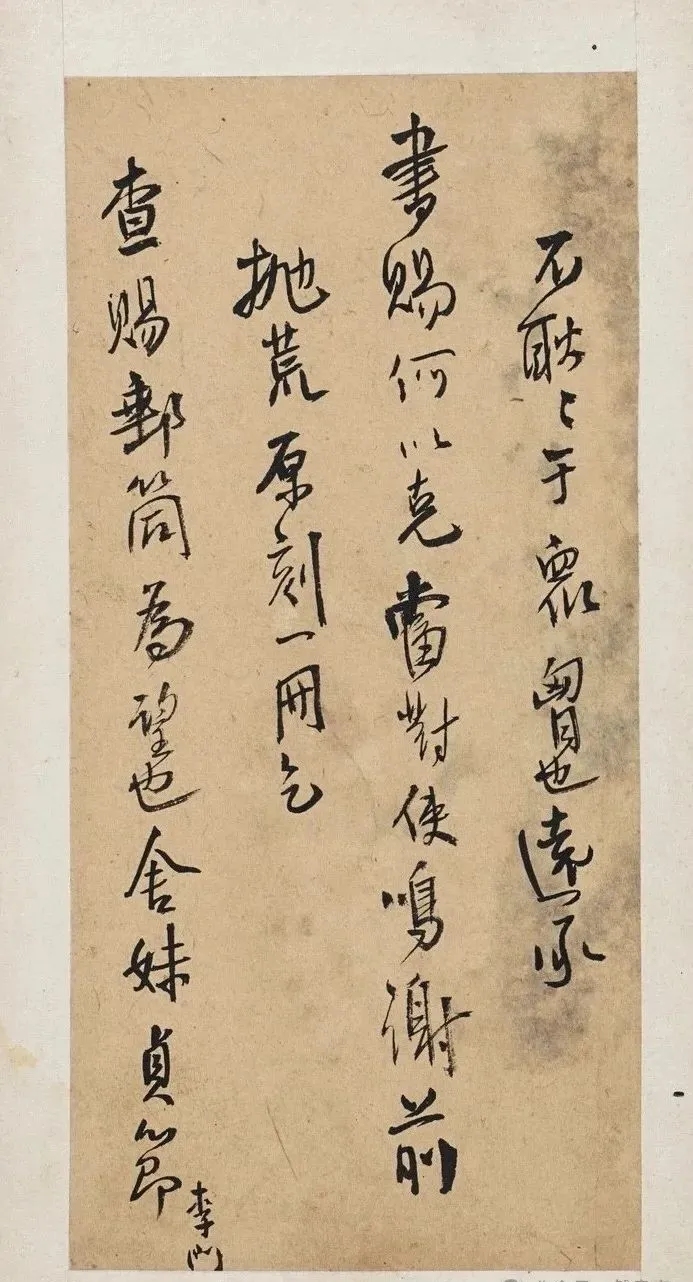 不耿〻于衆胷也遠承
書賜何以克當對使鳴謝前
拋荒原刻一冊乞
查賜郵筒為望也舍妹貞節
李門